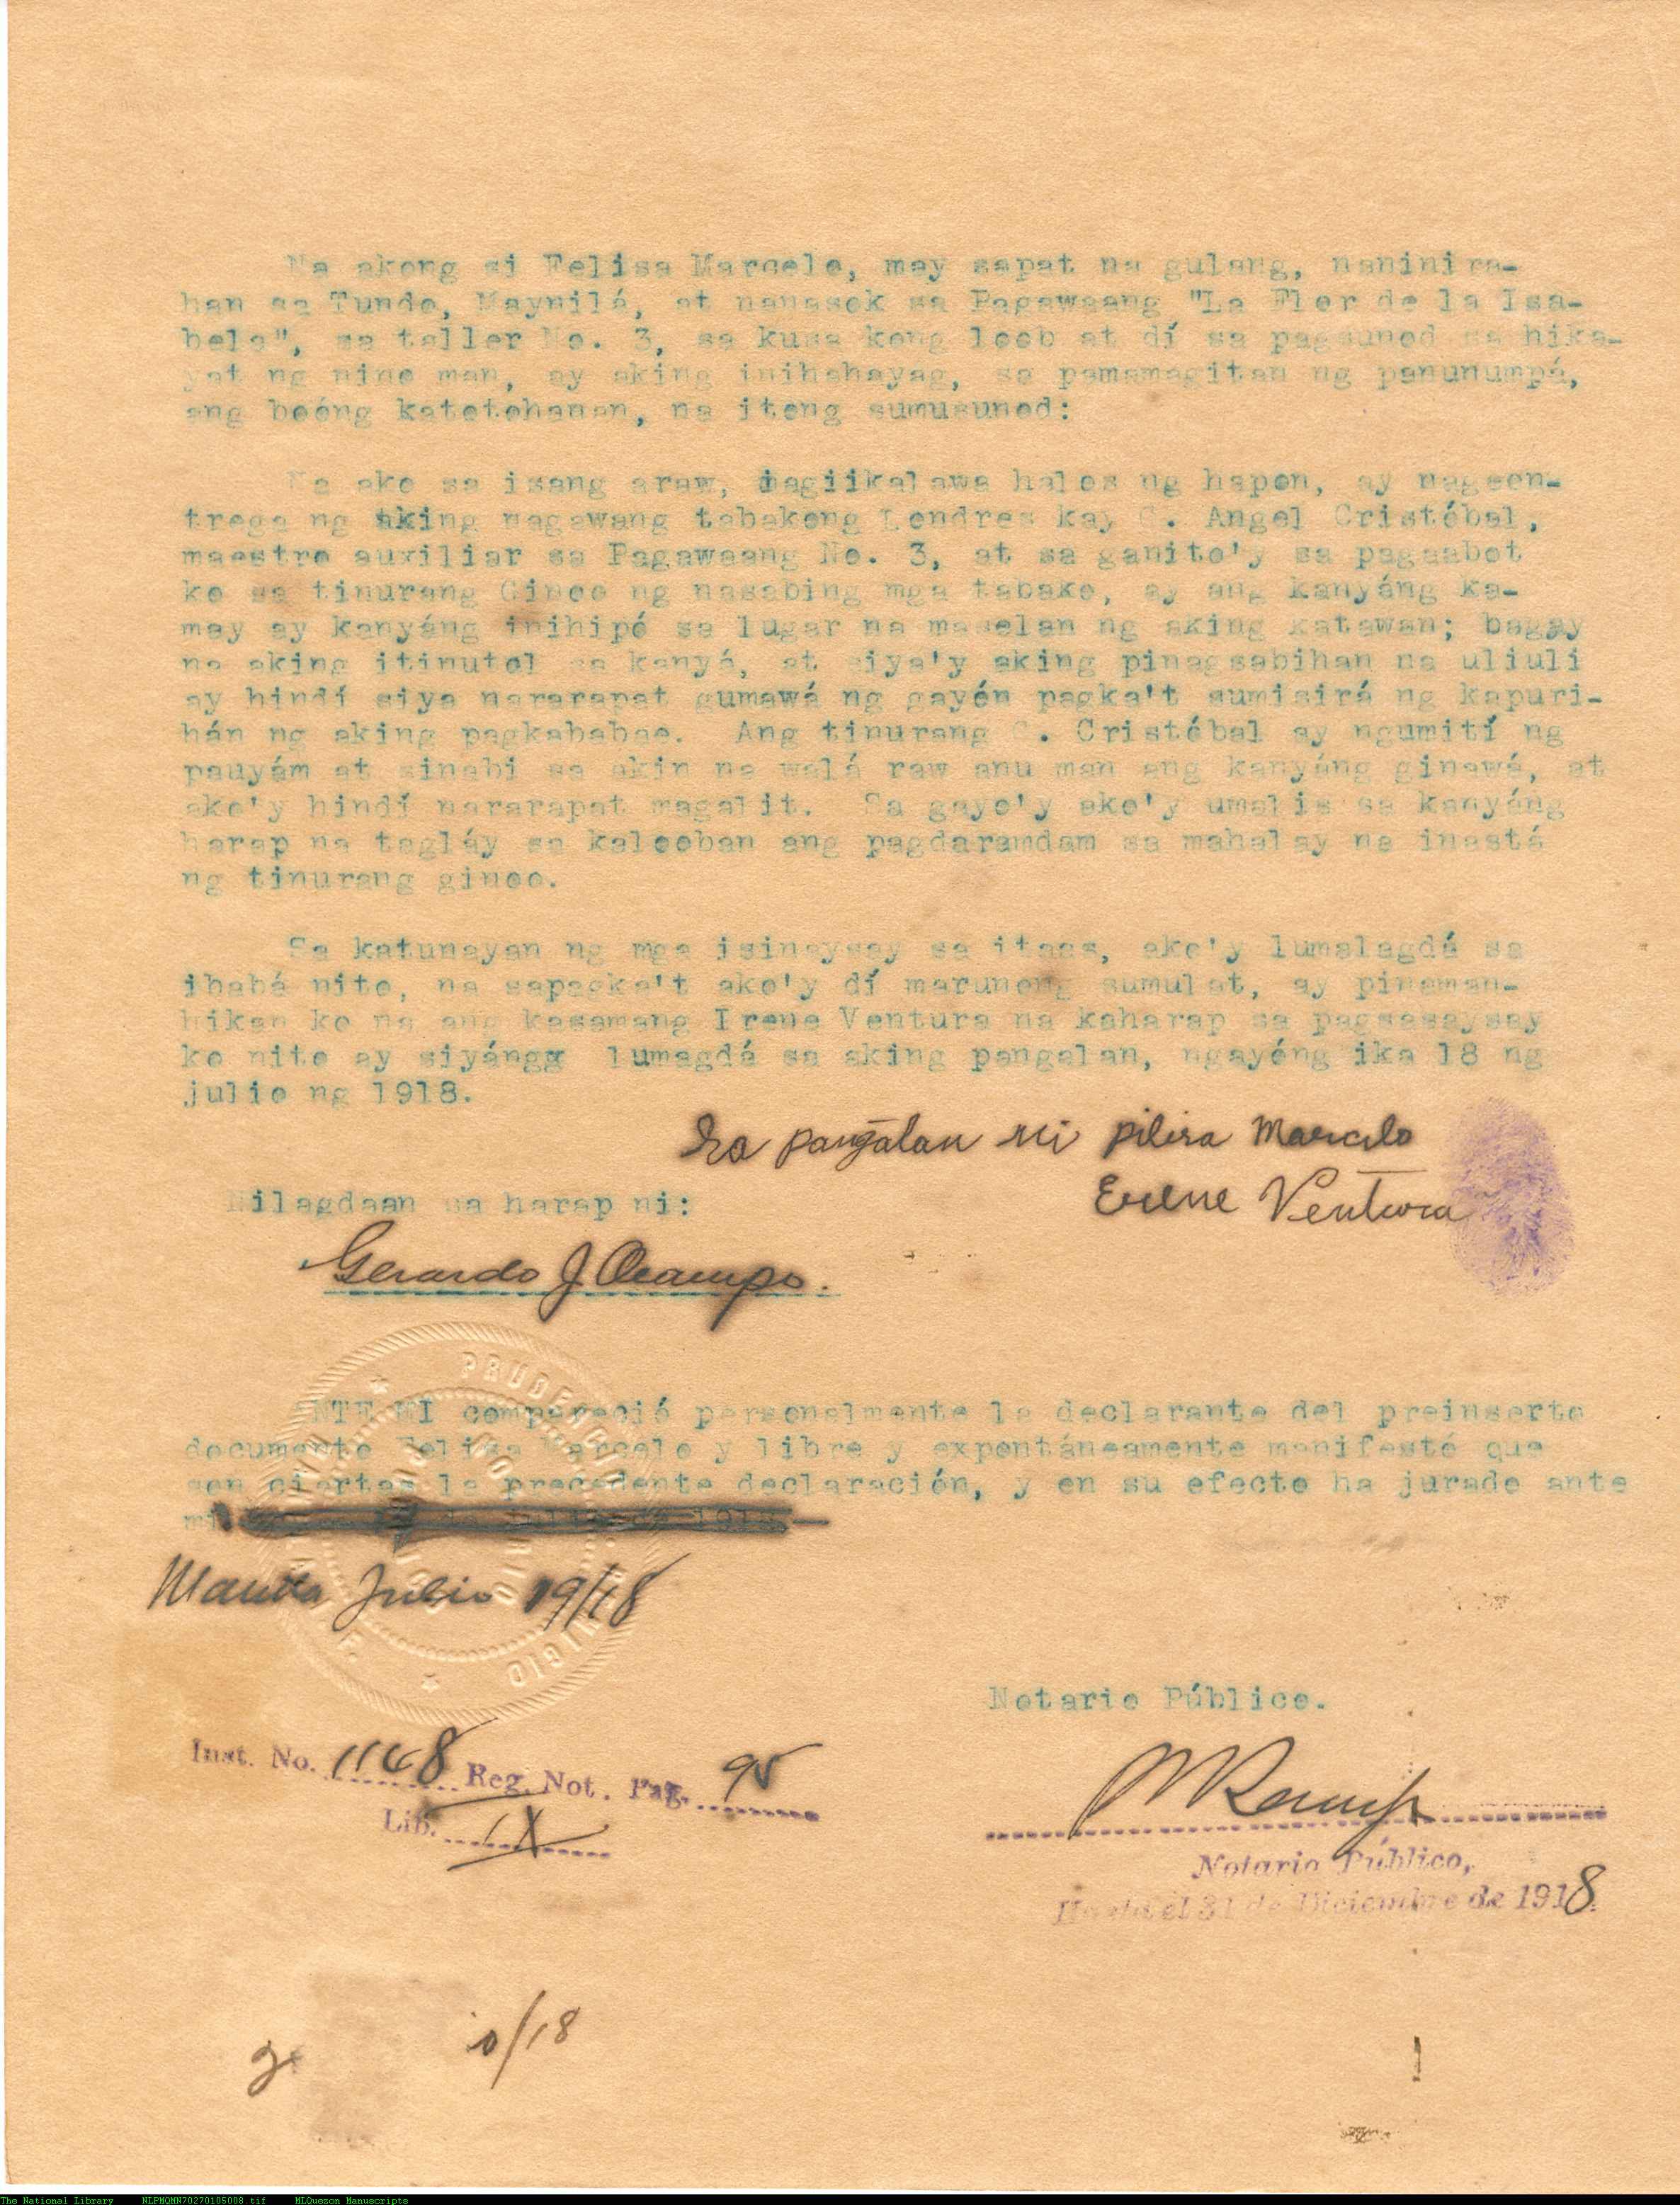 Na akong si Felisa Marcelo, may sapat na gulang, naninira-
han sa Tundo, Maynilá, at nanasok sa Pagawaang "La Flor de la Isa-
bela", sa taller No. 3, sa kusa kong loob at dí sa pagsunod sa hika-
yat ng nino man, ay aking inihahayag, sa pamamagitan ng panunumpá,
ang boóng katotohanan, na itong sumusunod:
Na ako sa isang araw, magiikalawa halos ng hapon, ay nageen-
trega ng aking nagawang tabakong Londres kay G. Angel Cristóbal,
maestro auxiliar sa Pagawaang No. 3, at sa ganito'y sa pagaabot
ko sa tinurang Ginoo ng nasabing mga tabako, ay ang kanyáng ka-
may ay kanyáng inihipó sa lugar na maselan ng aking katawan; bagay
na aking itinutol sa kanyá, at siya'y aking pinagsabihan na uliuli
ay hindí siya nararapat gumawá ng gayón pagka't sumisirá ng kapuri-
hán ng aking pagkababae. Ang tinurang G. Cristóbal ay ngumití ng
pauyám at sinabi sa akin na walá raw anu man ang kanyáng ginawá, at
ako'y hindí nararapat magalit. Sa gayo'y ako'y umalis sa kanyáng
harap na tagláy sa kalooban ang pagdaramdam sa mahalay na inastá
ng tinurang ginoo.
Sa katunayan ng mga isinaysay sa itaas, ako'y lumalagdá sa
ibabá nito, na sapagka't ako'y dí marunong sumulat, ay pinaman-
hikan ko na ang kasamang Irene Ventura na kaharap sa pagsasaysay
ko nito ay siyángx lumagdá sa aking pangalan, ngayóng ika 18 ng
julio ng 1918.
Sa pangalan ni pilisa Marcelo
Erene Ventura
Nilagdaan sa harap ni:
Gerardo J Ocampo.
ANTE MI compareció personalmente la declarante del preinserto
documento Felisa Marcelo y libre y expontáneamente manifestó que
son ciertas la precedente declaración, y en su efecto ha jurado ante
mi
Manila Julio 19/18
Notario Público.
Inst. No. 1168 Reg. Not. Pag. 95
Lib. IX
Notario Público,
Hasta el 31 de Diciembre de 1918.
/18
The National Library NLPMQMN70270105008.tif MLQuezon Manuscripts